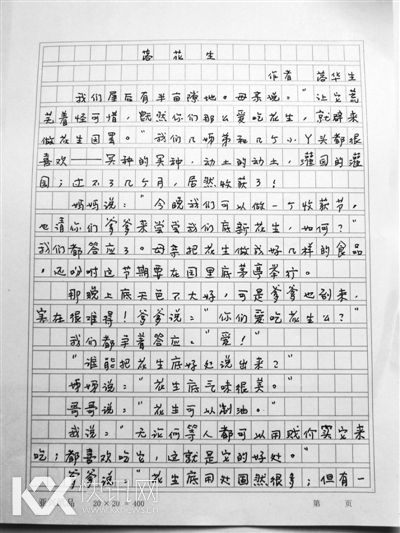 落花生
作者 落华生
我们屋后有半亩隙地。母亲说:"让它荒
芜着怪可惜,既然你们那么爱吃花生,就辟来
做花生园罢。"我们几姊弟和几个小丫头都很
喜欢——买种的买种,动土的动土,灌园的灌
园;过不了几个月,居然收获了!
妈妈说:"今晚我们可以做一个收获节,
也请你们爹爹来尝尝我们底新花生,如何?"
我们都答应了。母亲把花生做成好几样的食品
,还吩咐这节期要在园里底茅亭举行。
那晚上底天色不大好,可是爹爹也到来,
实在很难得!爹爹说:"你们爱吃花生么?"
我们都争着答应。"爱!"
"谁能把花生底好处说出来?"
姊姊说:"花生底气味很美。"
哥哥说:"花生可以制油。"
我说:"无论何等人都可以用贱价买它来
吃;都喜欢吃它,这就是它的好处。"
爹爹说:"花生底用处固然很多;但有一
KX 快讯网
品 20×20=400 第 页